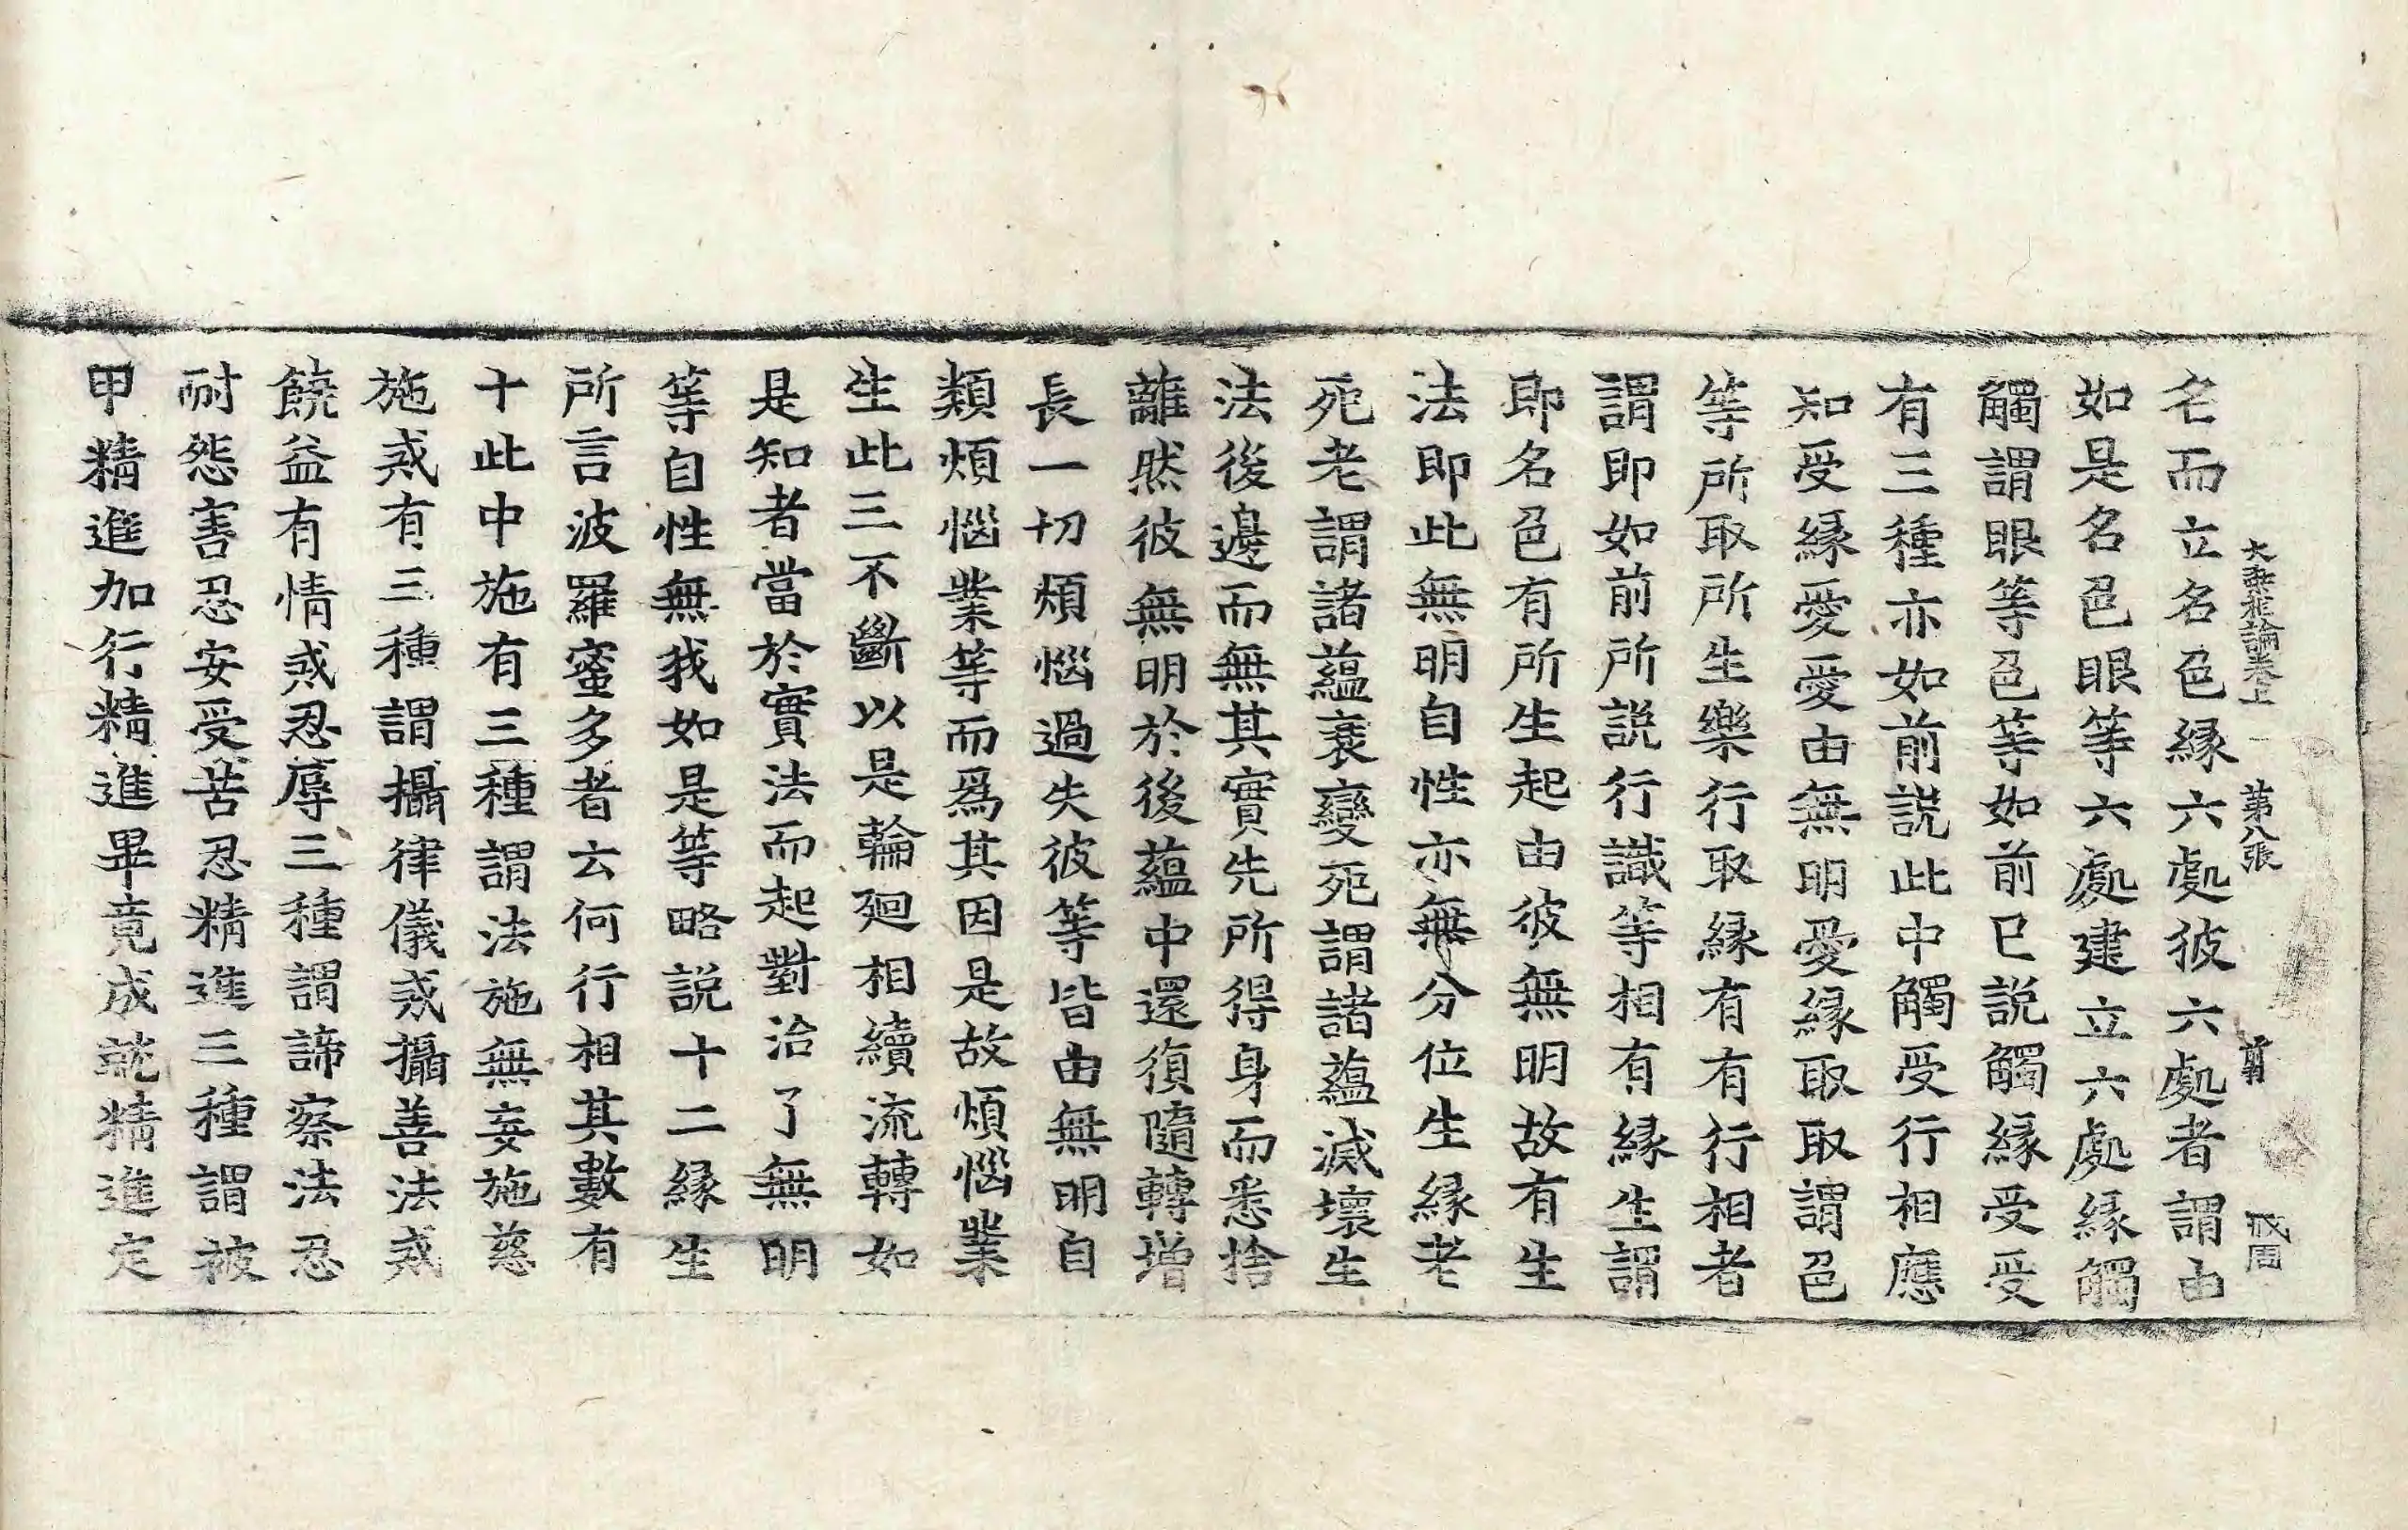 大乘相論卷上 第八張 翦 戌周
名而立名色緣六處彼六處者謂由
如是名色眼等六處建立六處緣觸
觸謂眼等色等如前已說觸緣受受
有三種亦如前説此中觸受行相應
知受緣愛愛由無明愛緣取取謂色
等所取所生樂行取緣有有行相者
謂即如前所説行識等相有緣生謂
即名色有所生起由彼無明故有生
法即此無明自性亦無分位生緣老
死老謂諸蘊衰變死謂諸蘊滅壞生
法後邊而無其實先所得身而悉捨
離然彼無明於後蘊中還復隨轉增
長一切煩惱過失彼等皆由無明自
類煩惱業等而爲其因是故煩惱業
生此三不斷以是輪迴相續流轉如
是知者當於實法而起對治了無明
等自性無我如是等略説十二緣生
所言波羅蜜多者云何行相其數有
十此中施有三種謂法施無妄施慈
施戒有三種謂攝律儀戒攝善法戒
饒益有情戒忍辱三種謂諦察法忍
耐怨害忍安受苦忍精進三種謂被
甲精進加行精進畢竟成就精進定